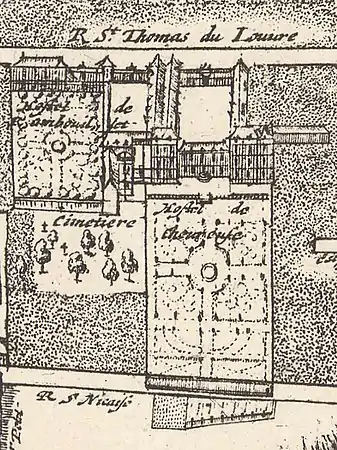 R St Thomas du Louure
Hostel de
Cimetiere
Hostel de
cheureuse
R St Nicaise